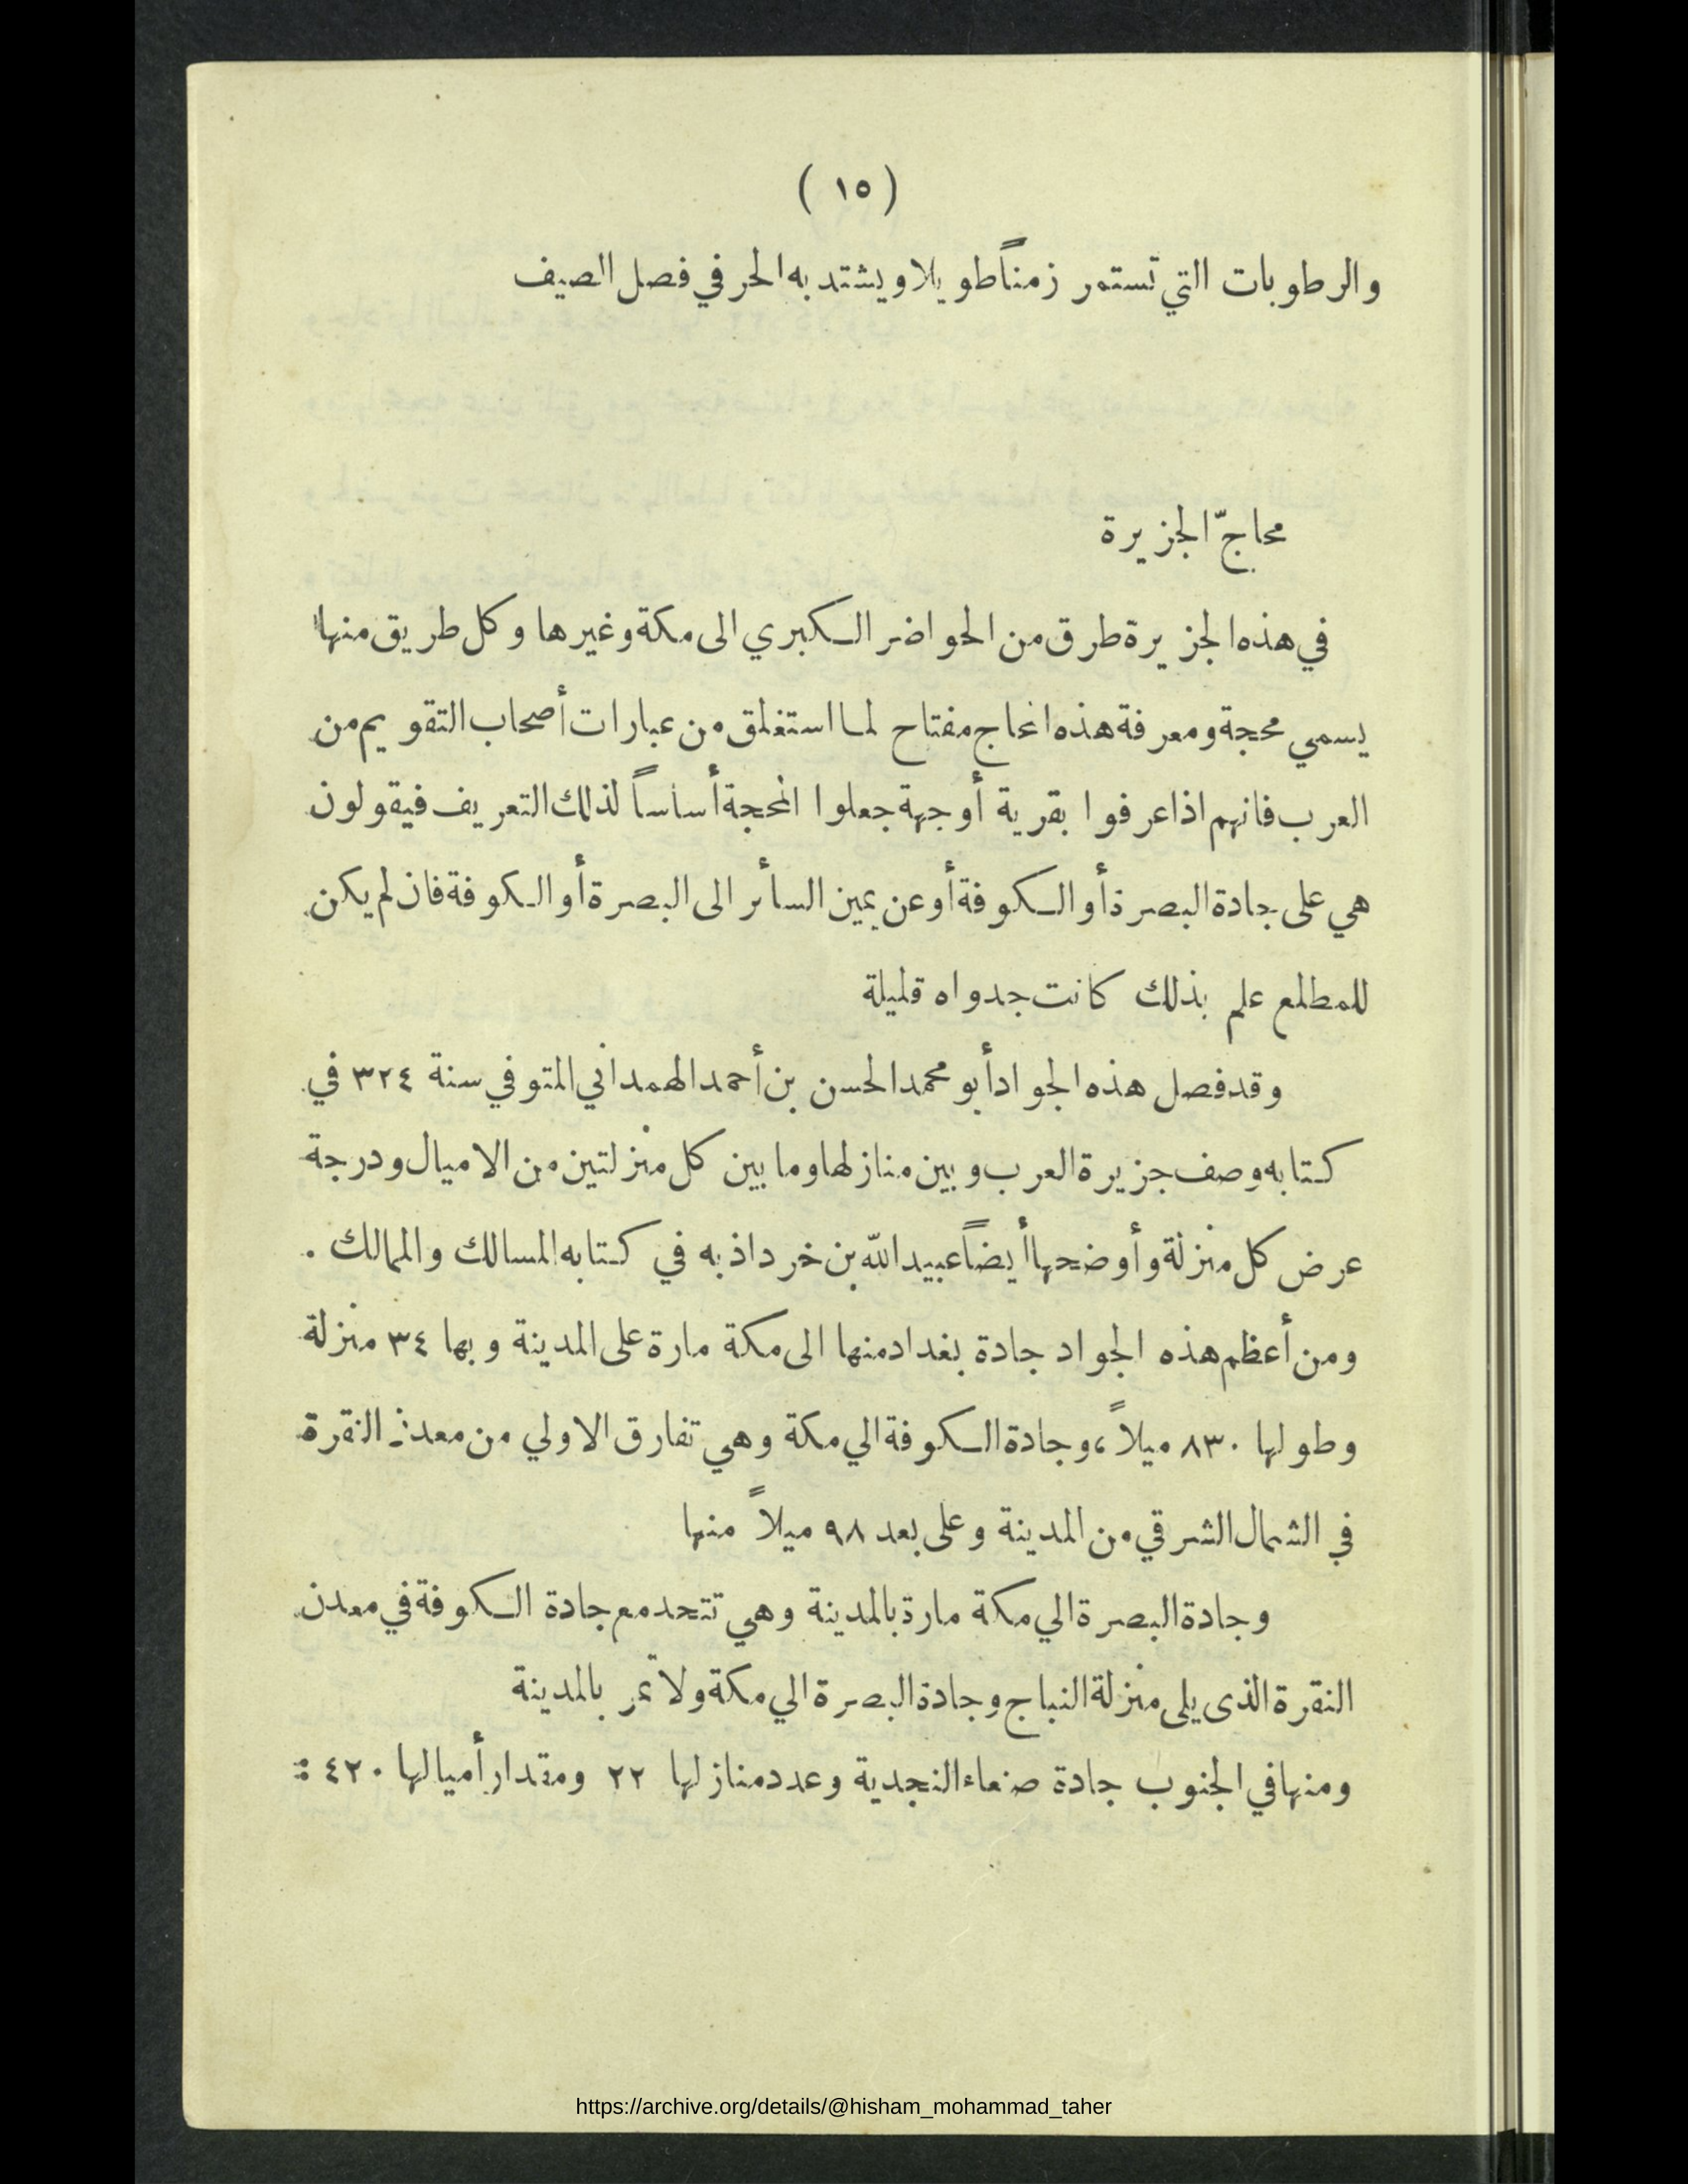 ( ١٥ )
والرطوبات التي تستمر زمناً طويلا ويشتد به الحر في فصل الصيف
محاجّ الجزيرة
في هذه الجزيرة طرق من الحواضر الكبري الى مكة وغيرها وكل طريق منها
يسمي محجة ومعرفة هذه المحاج مفتاح لما استغلق من عبارات أصحاب التقويم من
العرب فانهم اذا عرفوا بقرية أو جهة جعلوا المحجة أساساً لذلك التعريف فيقولون
هي على جادة البصرة أو الكوفة أو عن يمين السأئر الى البصرة أو الكوفة فان لم يكن
للمطلع علم بذلك كانت جدواه قليلة
وقد فصل هذه الجواد أبو محمد الحسن بن أحمد الهمداني المتوفي سنة ٣٢٤ في
كتابه وصف جزيرة العرب وبين منازلها وما بين كل منزلتين من الاميال ودرجة
عرض كل منزلة وأوضحها أيضاً عبيد الله بن خرداذبه في كتابه المسالك والممالك .
ومن أعظم هذه الجواد جادة بغداد منها الى مكة مارة على المدينة وبها ٣٤ منزلة
وطولها ٨٣٠ ميلاً ، وجادة الكوفة الي مكة وهي تفارق الاولي من معدن النقرة
في الشمال الشرقي من المدينة وعلى بعد ٩٨ ميلاً منها
وجادة البصرة الي مكة مارة بالمدينة وهي تتحد مع جادة الكوفة في معدن
النقرة الذى يلى منزلة النباج وجادة البصرة الي مكة ولا تمر بالمدينة
ومنها في الجنوب جادة صنعاء النجدية وعدد منازلها ٢٢ ومقدار أميالها ٤٢٠
https://archive.org/details/@hisham_mohammad_taher